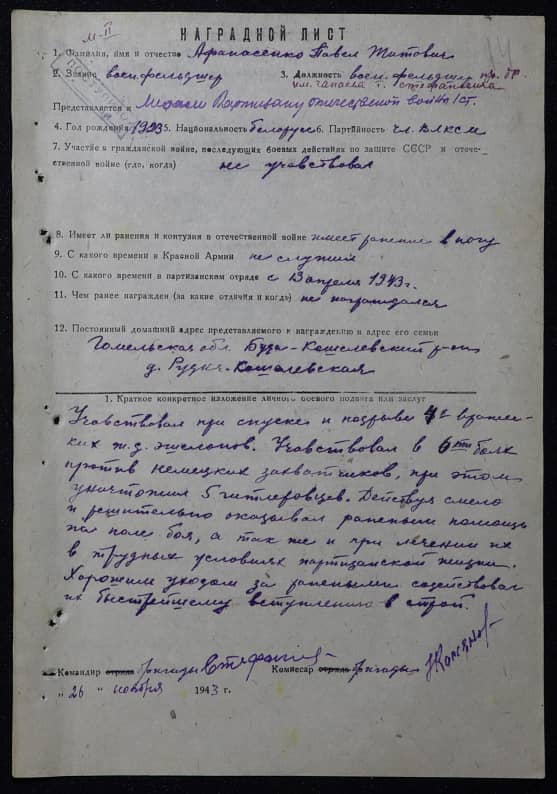 м-II
НАГРАДНОЙ ЛИСТ
1. Фамилия, имя и отчество Афанасенко Павел Титович
2. Звание воен. фельдшер 3. Должность воен. фельдшер пр. бр.
им. Чапаева
Представляется к Медали Партизану отечественной войны I ст.
4. Год рождения 1923 5. Национальность белорус 6. Партийность чл. ВЛКСМ
7. Участие в гражданской войне, последующих боевых действиях по защите СССР и отече-
ственной войне (где, когда) не учавствовал
8. Имеет ли ранения и контузии в отечественной войне имеет ранение в ногу
9. С какого времени в Красной Армии не служил
10. С какого времени в партизанском отряде с 13 апреля 1943 г.
11. Чем ранее награжден (за какие отличия и когда) не награждался
12. Постоянный домашний адрес представляемого к награждению и адрес его семьи
Гомельская обл. Буда-Кошелевский р-он
д. Рудня-Кошелевская
1. Краткое конкретное изложение личного боевого подвига или заслуг
Учавствовал при спуске и подрыве 4х вражес-
ких ж.д. эшелонов. Учавствовал в 6ти боях
против немецких захватчиков, при этом
уничтожил 5 гитлеровцев. Действуя смело
и решительно оказывал раненым помощь
на поле боя, а так же и при лечении их
в трудных условиях партизанской жизни.
Хорошим уходом за ранеными содействовал
их быстрейшему вступлению в строй.
Командир отряда бригады Комиссар отряда бригады
„26" ноября 1943 г.